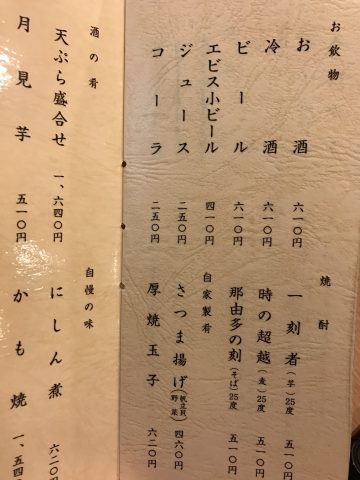 お飲物
お酒 六一〇円
冷酒 六一〇円
ビール 六一〇円
エビス小ビール 四一〇円
ジュース 二五〇円
コーラ 二五〇円
焼酎
一刻者(芋)25度 五一〇円
時の超越(麦)25度 五一〇円
那由多の刻(そば)25度 五一〇円
自家製肴
さつま揚げ(帆立貝 野菜) 四六〇円
厚焼玉子 六二〇円
酒の肴
天ぷら盛合せ 一、六四〇円
月見芋 五一〇円
自慢の味
にしん煮 六二〇円
かも焼 一、五四